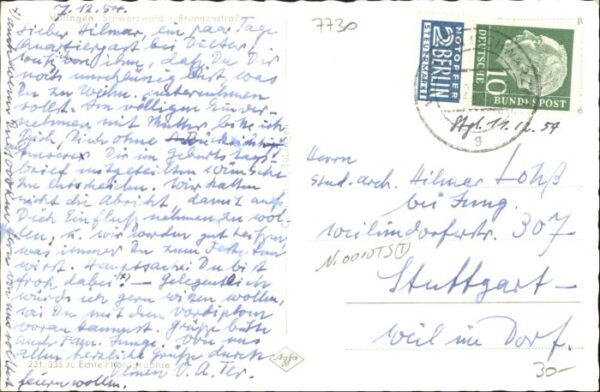 7.12.54.
Villingen, Schwarzwald - Brunnenstraße
Lieber Hilmar, ein paar Tage
Quartiergast bei Dieter,
weiß von ihm, daß Du Dir
noch unschlüssig bist, was
Du zu Weihn. unternehmen
sollst. Im völligen Einver-
nehmen mit Mutter bitte ich
Dich, Dich ohne Rücksicht
unserer Dir im Geburtstags-
brief mitgeteilten Wünsche
zu entscheiden. Wir hatten
nicht die Absicht damit auf
Dich Einfluß nehmen zu wol-
len, u. wir werden gut heißen,
was immer Du zum Feste tun
wirst. Hauptsache Du bist
froh dabei! - Gelegentlich
würde ich gern wissen wollen,
wie Du mit dem Vordiplom
voran kommst. Grüße bitte
auch Fam. Junge. Von uns
allen herzliche Grüße durch
Deinen V. A. Ter.
231/335 Jc Echte Photographie
Agfa
feiern wollen.
7730
NOTOPFER
2 BERLIN
STEUERMARKE
DEUTSCHE
BUNDESPOST
10
g
Stgt. 11.12.54
Herrn
stud. arch. Hilmar Lohß
bei Jung.
Weilimdorferstr. 307
N.0010TS(I)
Stuttgart-
Weil im Dorf.
30-